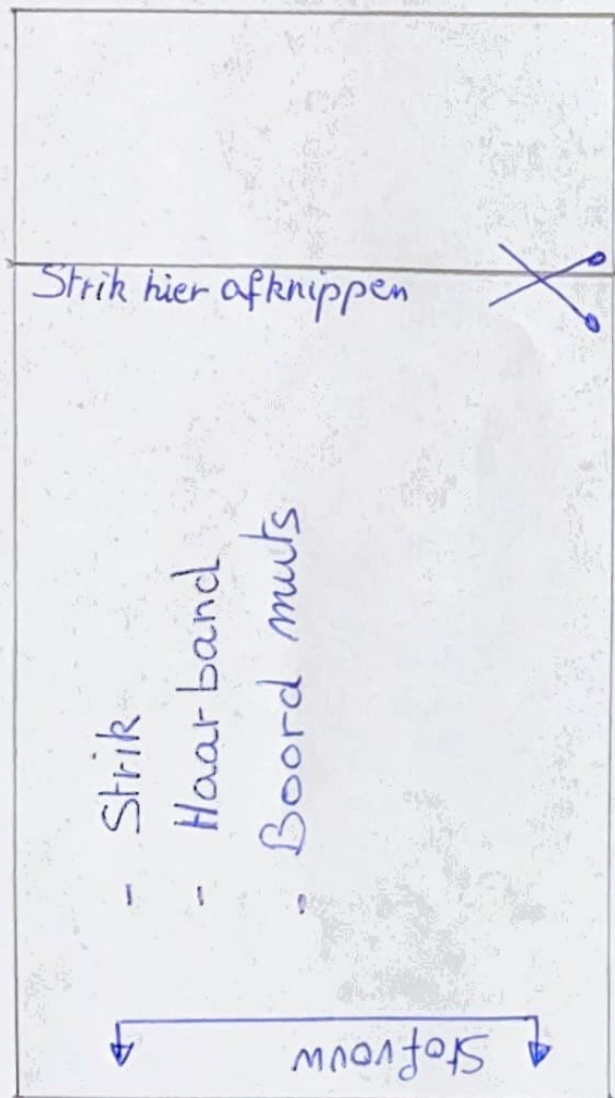 Strik hier afknippen
- Strik
- Haarband
- Boord muts
Stofvouw